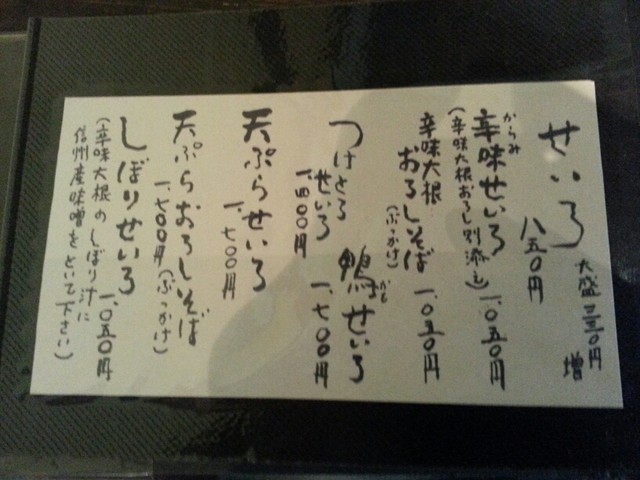 せいろ
八五〇円
大盛三三〇円増
辛味せいろ
からみ
(辛味大根おろし別添え)
一、〇五〇円
辛味大根
おろしそば
(ぶっかけ)
一、〇五〇円
つけとろ
せいろ
一、四〇〇円
鴨せいろ
かも
一、七〇〇円
天ぷらせいろ
一、七〇〇円
天ぷらおろしそば
一、七〇〇円(ぶっかけ)
しぼりせいろ
一、〇五〇円
(辛味大根のしぼり汁に
信州産味噌をといて下さい)